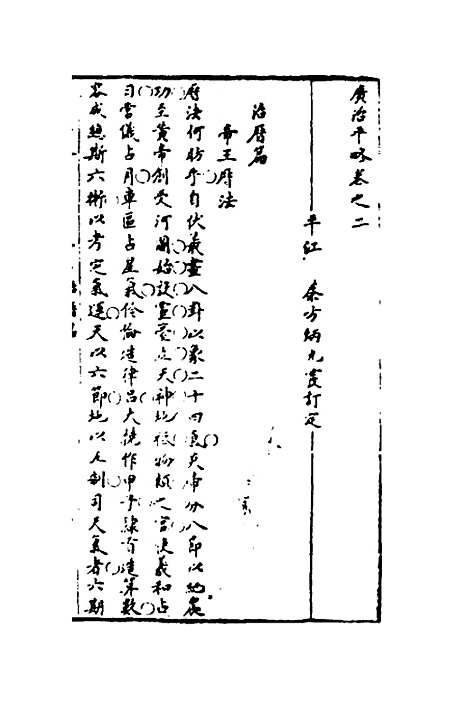 廣治平略卷之二
平江 蔡方炳九霞訂定
治曆篇
帝王曆法
曆法何昉乎自伏羲畫八卦以象二十四氣炎帝分八節以紀農
功至黃帝創受河圖始設靈臺立天神地祇物類之官使羲和占
日常儀占月車區占星氣伶倫造律呂大撓作甲子隸首造算數
容成總斯六術以考定氣運天以六節地以五制司天氣者六期